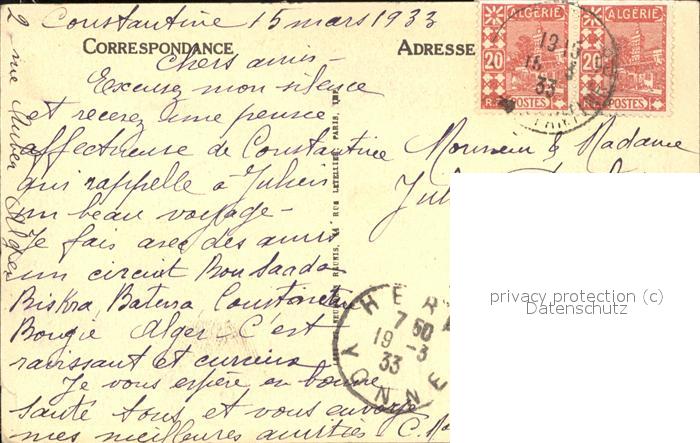 Constantine 15 mars 1933
CORRESPONDANCE
ADRESSE
Chers amis -
Excusez mon silence
et recevez une pensée
affectueuse de Constantine
qui rappelle à Julien
un beau voyage -
Je fais avec des amis
un circuit Bou Saada
Biskra, Batna, Constantine
Bougie Alger C'est
ravissant et curieux
Je vous espère en bonne
santé tous et vous envoye
mes meilleures amitiés C.
2 rue Auber Alger
Monsieur & Madame
ALGERIE
ALGERIE
20
20
POSTES
POSTES
19 15
15 3
33
7 50
19 -3
33
YONNE
RUE LETELLIER, PARIS
privacy protection (c)
Datenschutz